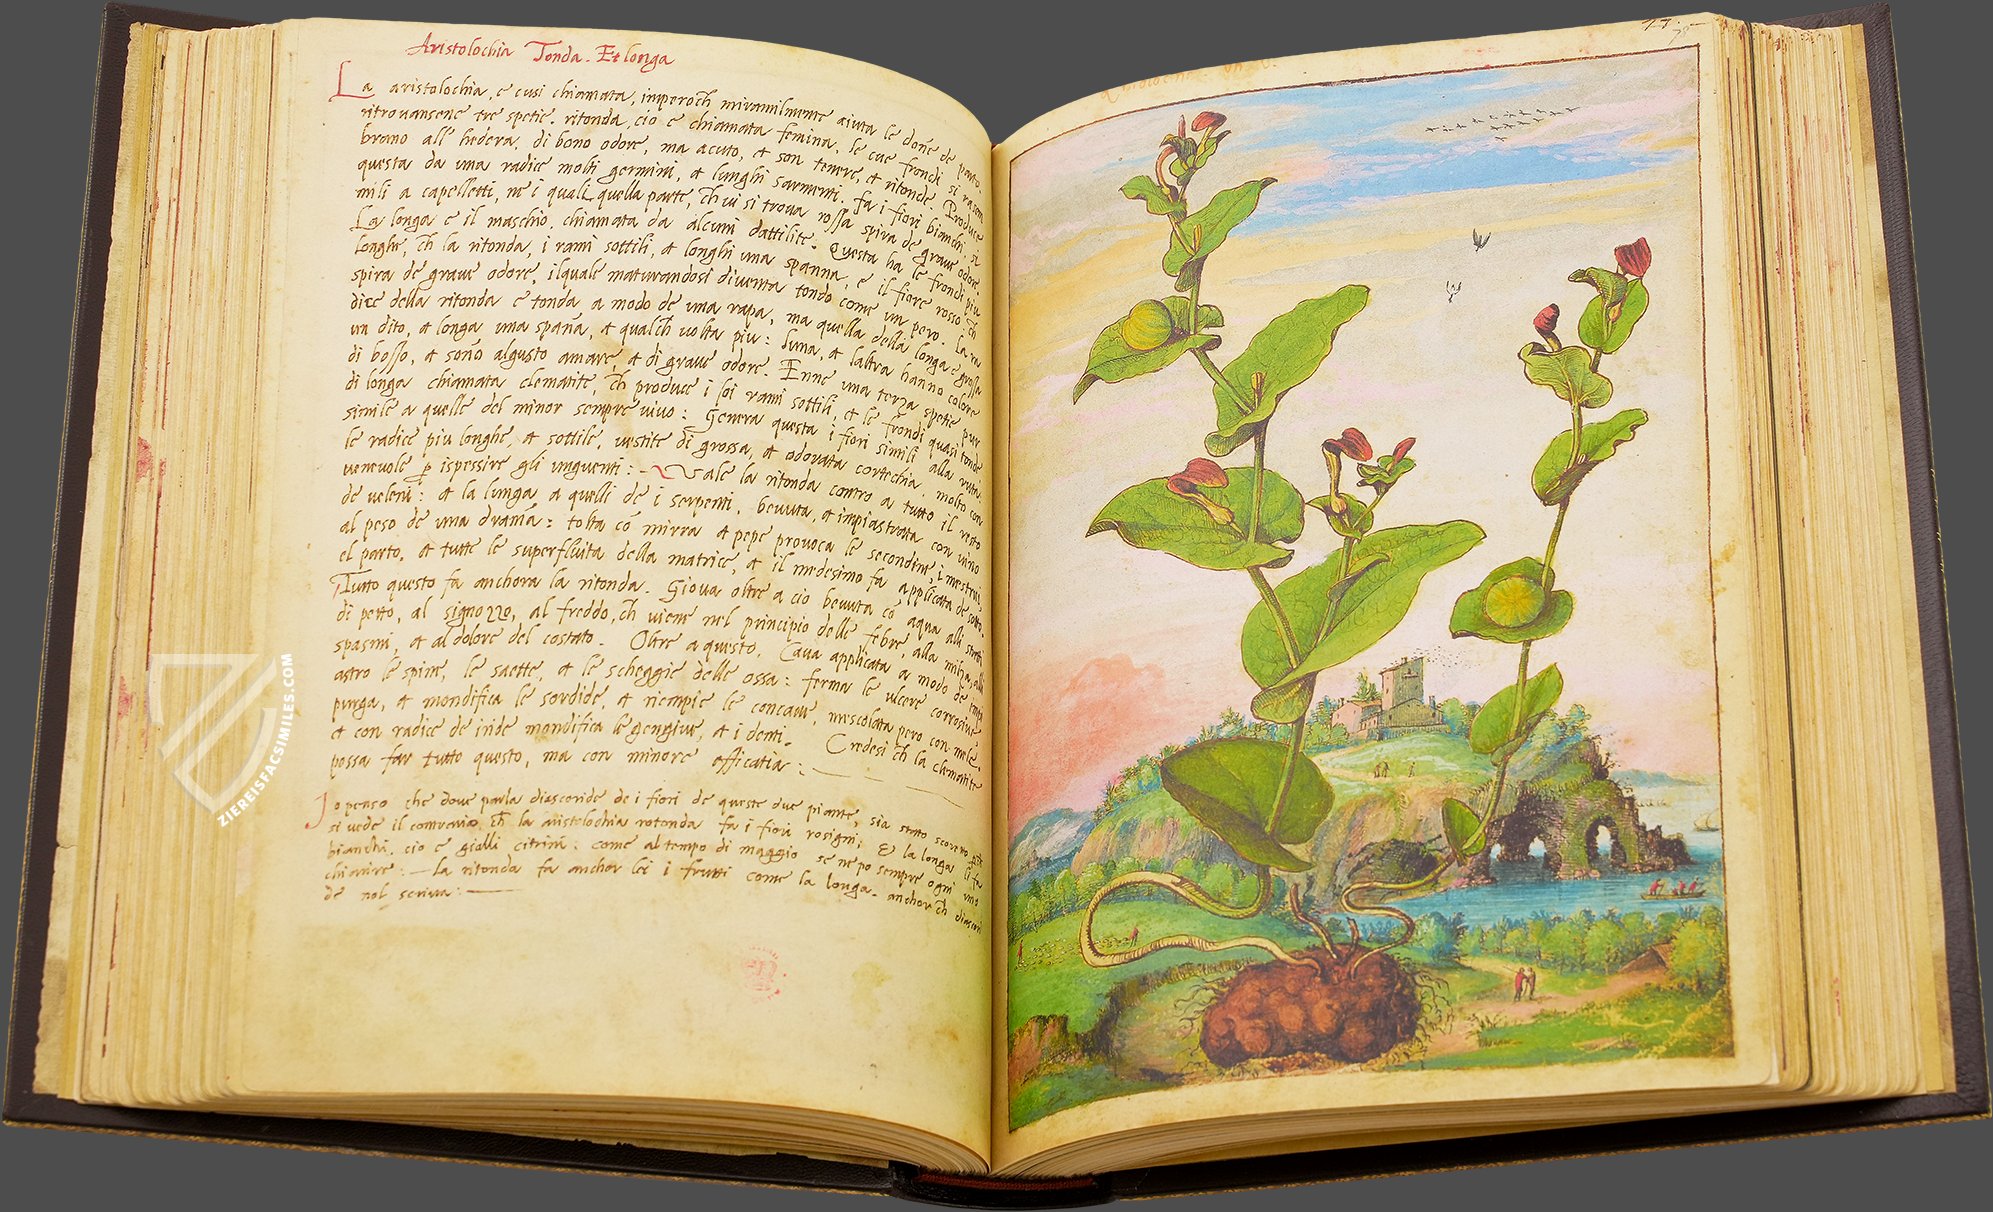 Aristolochia Tonda. Et longa
La aristolochia, e cusi chiamata, imperoch mirauilmente aiuta le done de parto.
ritrouansene tre spetie. ritonda, cio e chiamata femina, le cue frondi si rasem
brano all' hedera, di bono odore, ma acuto, et son tenere, et ritonde. Produce
questa da una radice molti germini, et lunghi sarmenti. fa i fiori bianchi, si
mili a capelletti, ne i quali quella parte, ch ui si troua rossa spira de graue odore.
La longa e il maschio, chiamata da alcuni dattilite. Questa ha le frondi piu
longhe, ch la ritonda, i rami sottili, et longhi una spanna, e il fiore rosso ch
spira de graue odore, ilquale maturandosi diuenta tondo come un pero. La ra
dice della ritonda e tonda a modo de una rapa, ma quella della longa e grossa
un dito, et longa una spana, et qualch uolta piu: luna, et laltra hanno colore
di bosso, et sono algusto amare, et di graue odore. Enne una terza spetie pur
di longa chiamata clematite, ch produce i soi rami sottili, et le frondi quasi tonde
simile a quelle del minor sempre uiuo: Genera questa i fiori simili alla ruta.
le radice piu longhe, et sottile, uestite di grossa, et odorata cortechia, molto con
ueneuole p ispessire gli unguenti: Vale la ritonda contro a tutto il resto
de ueleni: et la lunga a quelli de i serpenti, beuuta, et impiastrata con uino
al peso de una drama: tolta co mirra et pepe prouoca le secondine, i mestrui,
el parto, et tutte le superfluita della matrice, et il medesimo fa applicata de sotto.
Tutto questo fa anchora la ritonda. Gioua oltre a cio beuuta co aqua alli stretti
di petto, al signozzo, al freddo, ch uiene nel principio delle febre, alla milza, alli
spasmi, et al dolore del costato. Oltre a questo, Caua applicata a modo de impi
astro le spine, le saette, et le scheggie delle ossa: ferma le ulcere corrosiue
purga, et mondifica le sordide, et riempie le concaue, mescolata pero con mele.
et con radice de iride mondifica le gengiue, et i denti. Credesi ch la clematite
possa far tutto questo, ma con minore efficatia:
Io penso che doue parla diascoride de i fiori de queste due piante, sia stato scoretto
si uede il contrario, ch la aristolochia rotonda fa i fiori rosigni, Et la longa li fa
bianchi, cio e gialli citrini: come al tempo di maggio se ne po sempre ogni uno
chiarire: La ritonda fa anchor lei i frutti come la longa. anchor ch diascori
de nol scriua:
77
78
ZIEREISFACSIMILES.COM